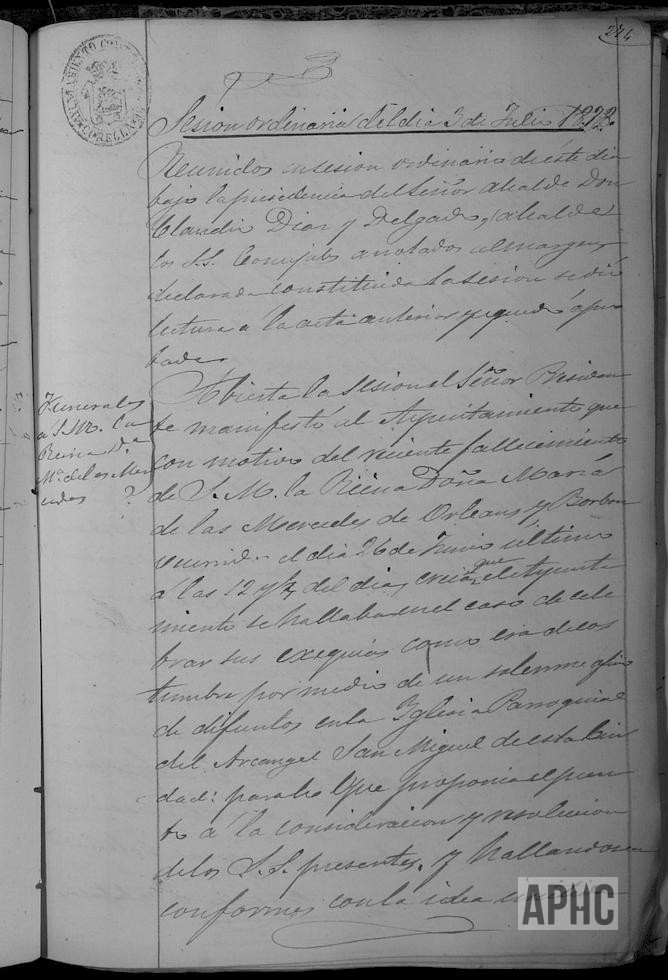 274
AYUNTAMIENTO CORELLA
Sesion ordinaria del dia 3 de Julio 1878.
Reunidos en sesion ordinaria de este dia
bajo la presidencia del Señor Alcalde Don
Claudio Diaz y Delgado, Alcalde
los S.S. Concejales anotados al margen,
declarada constituida la sesion se dió
lectura a la acta anterior y quedó apro
bada.
Funerales
a S.M. la
Reina D.a
Ma. de las Mer
cedes
Abierta la sesion el Señor Presiden
te manifestó al Ayuntamiento que
con motivo del reciente fallecimiento
de S.M. la Reina Doña Maria
de las Mercedes de Orleans y Borbon
ocurrido el dia 26 de Junio último
á las 12 y 1/4 del dia, creia que el Ayunta
miento se hallaba en el caso de cele
brar sus exequias como era de cos
tumbre por medio de un solemne oficio
de difuntos en la Iglesia Parroquial
del Arcangel San Miguel de esta Ciu
dad: para lo que proponia el pun
to á la consideracion y resolucion
de los S.S. presentes. y hallandose
conformes con la idea
APHC